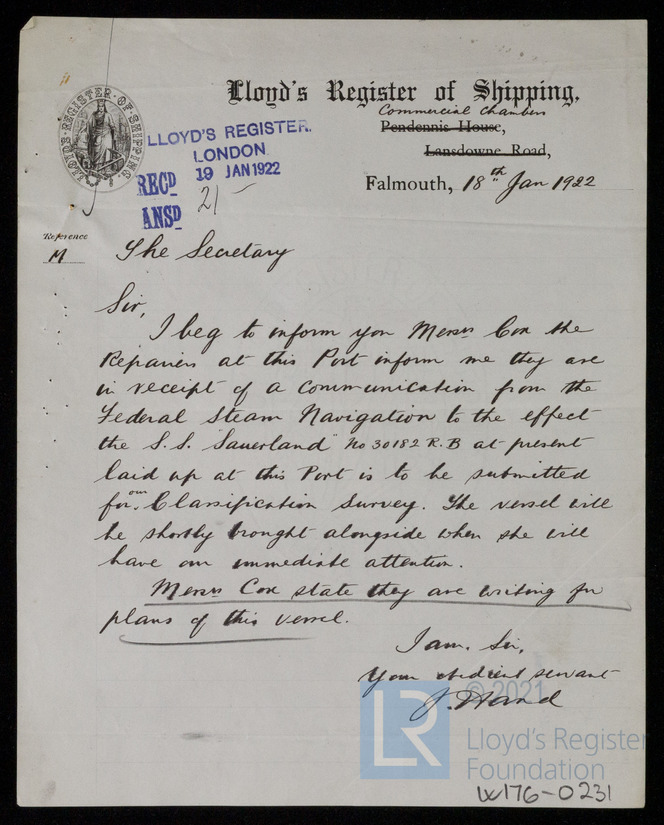 Lloyd's Register of Shipping,
Commercial Chambers
Pendennis House,
Lansdowne Road,
Falmouth, 18th Jan 1922
LLOYD'S REGISTER OF SHIPPING.
LLOYD'S REGISTER.
LONDON
RECD 19 JAN 1922
ANSD 21
Reference
M
The Secretary
Sir,
I beg to inform you Messrs Cox the
Repairers at this Port inform me they are
in receipt of a communication from the
Federal Steam Navigation to the effect
the S.S. "Sauerland" No 30182 R.B at present
laid up at this Port is to be submitted
for our Classification Survey. The vessel will
be shortly brought alongside when she will
have our immediate attention.
Messrs Cox state they are writing for
plans of this vessel.
I am, Sir,
Your obedient servant
J. Hand
© 2021
LR
Lloyd's Register
Foundation
W176-0231